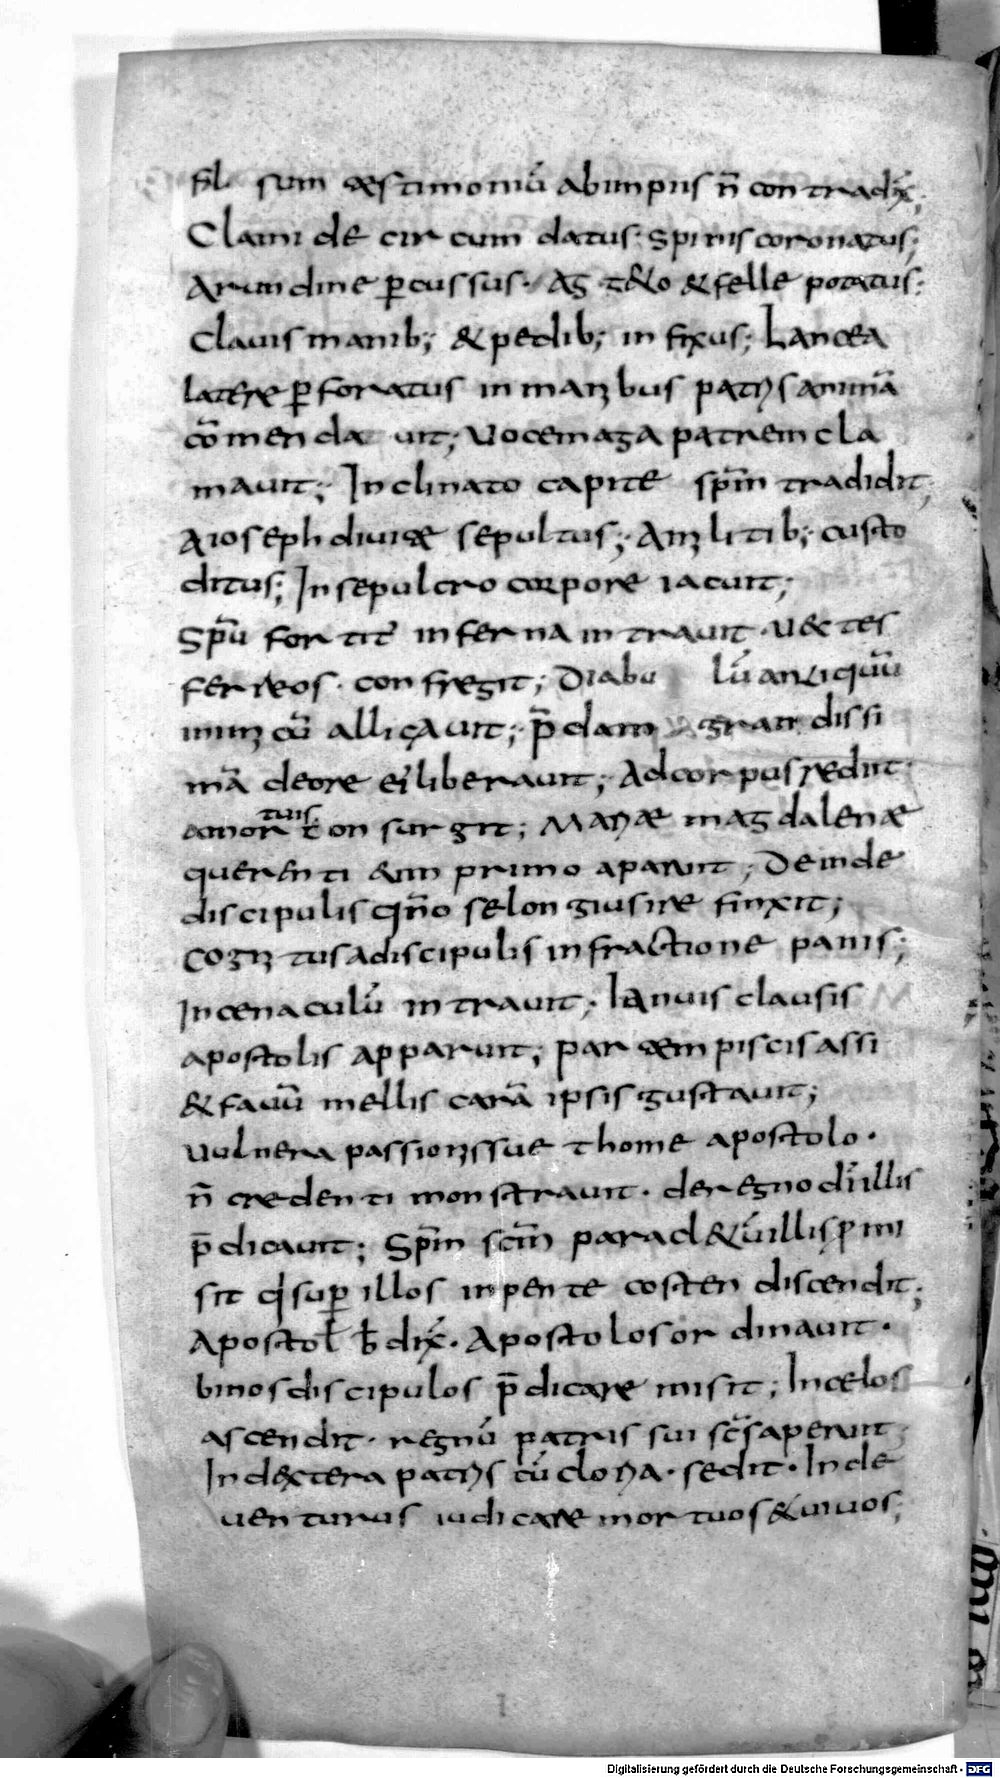 fsl sum testimoniũ abimpiis n̄ contradix̃;
Clamide circumdatus. spinis coronatus;
Arundine p̱cussus. Ag&to & felle potatus;
Clauis manib; & pedib; infixus; Lancea
latere p̱foratus in manibus patris animã
cõmendauit; Uoce maga patrem cla
mauit; Inclinato capite sp̄m tradidit;
A ioseph diuite sepultus; A militib; custo
ditus; In sepulcro corpore iacuit;
Sp̃u fortit̛ inferna intrauit. U&tes
ferreos. confregit; Diabulũ antiquũ
inimicũ alligauit; p̄dam grandissi
mã deore ei liberauit; Ad corpus rediit
amortuis. consurgit; Mariae magdalenae
querenti eum primo aparuit; Deinde
discipulis qño se longius ire finxit;
cognitus a discipulis in fractione panis;
In cenaculũ intrauit. Ianuis clausis
apostolis apparuit; partem piscis assi
& fauũ mellis carã ipsis gustauit;
Uulnera passionis sue thome apostolo.
n̄ credenti monstrauit. de regno dī illis
p̄dicauit; Sp̄m sc̄m parad&ũ illis p̱mi
sit qi sup̱ illos in pentecosten discendit;
Apostoł ƀdix̃. Apostolos ordinauit.
binos discipulos p̄dicare misit; In celos
ascendit. regnũ patris sui sc̃s aperuit;
In dextera patris cũ gloria. sedit. Inde
uenturus iudicare mortuos & uiuos;
Digitalisierung gefördert durch die Deutsche Forschungsgemeinschaft - DFG